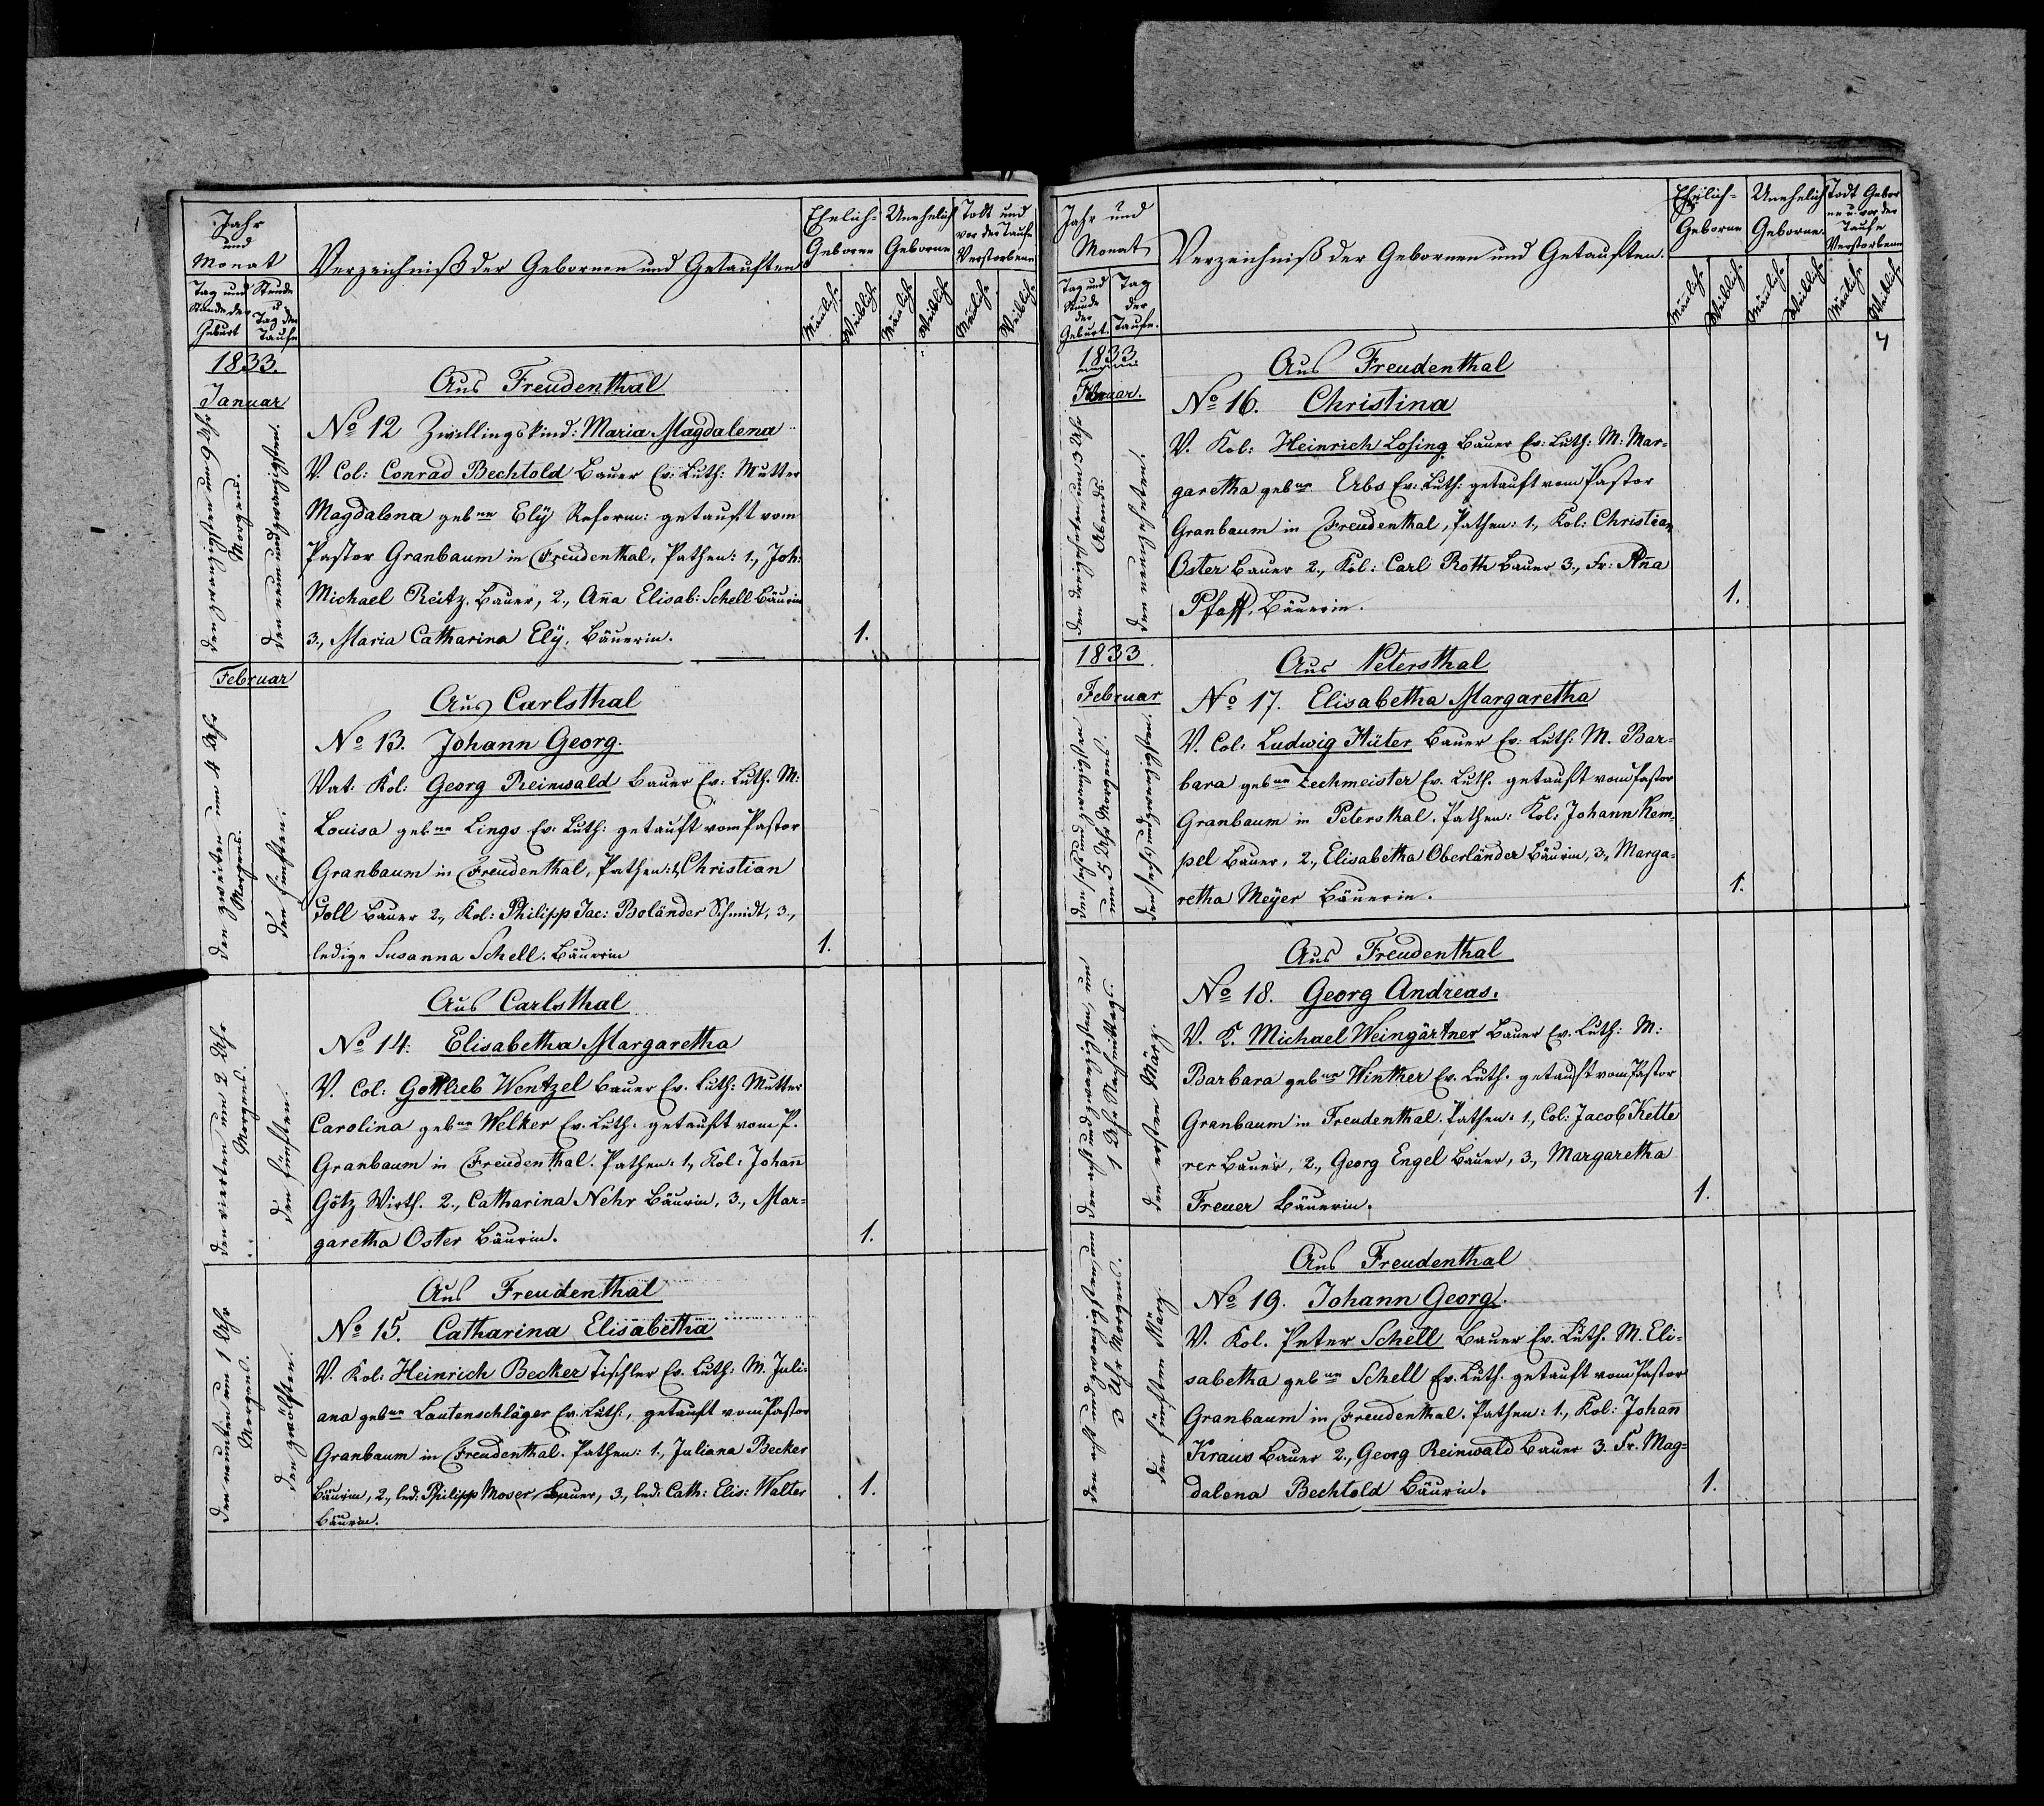 Jahr
und
Monat
Tag und
Stunde der
Geburt
Stunde
u
Tag der
Taufe
Verzeichniß der Gebornen und Getauften
Ehelich-
Geborne
Unehelich
Geborne
Todt und
vor der Taufe
Verstorbene
Mänlich.
Weiblich.
Mänlich.
Weiblich.
Mänlich.
Weiblich.
1833.
Januar
den zwanzigsten um 9 Uhr
Morgens.
den neun und zwanzigsten.
Aus Freudenthal
No 12 Zwillingskind: Maria Magdalena
V. Col: Conrad Bechtold Bauer Ev: Luth: Mutter
Magdalena gebne Elÿ Reform: getauft vom
Pastor Granbaum in Freudenthal, Pathen: 1., Joh:
Michael Reitz. Bauer, 2., Ana Elisab: Schell Bäurin
3., Maria Catharina Elÿ, Bäuerin.
1.
Februar
den zweiten um 4 Uhr
Morgens.
den fünften.
Aus Carlsthal
No 13. Johann Georg.
Vat: Kol: Georg Reinwald Bauer Ev: Luth. M:
Louisa gebne Lings Ev: Luth: getauft vom Pastor
Granbaum in Freudenthal, Pathen: 1, Christian
Goll Bauer 2., Kol: Philipp Jac: Boländer Schmidt, 3.,
ledige Susanna Schell. Bäurin
1.
den vierten um 2 Uhr
Morgens.
den fünften.
Aus Carlsthal
No 14: Elisabetha Margaretha
V. Col: Gottlieb Wentzel Bauer Ev. Luth: Mutter
Carolina gebne Welker Ev. Luth. getauft vom P.
Granbaum in Freudenthal. Pathen: 1., Kol: Johan
Götz Wirth. 2., Catharina Nehr Bäurin, 3., Mar-
garetha Oster Bäurin.
1.
den neunten um 1 Uhr
Morgens.
den zwölften.
Aus Freudenthal
No 15. Catharina Elisabetha
V. Kol: Heinrich Becker Tischler Ev. Luth: M. Juli-
ana gebne Lautenschläger Ev. Luth:, getauft vom Pastor
Granbaum in Freudenthal. Pathen: 1., Juliana Becker
Bäurin, 2., led: Philipp Moser, Bauer, 3., led: Cath: Elis: Walter
Bäurin.
1.
Jahr und
Monat
Tag und
Stunde
der
Geburt.
Tag
der
Taufe.
Verzeichniß der Gebornen und Getauften.
Ehelich-
Geborne
Unehelich
Geborne.
Todt Gebor
ne u. vor der
Taufe
Verstorbene
Mänlich.
Weiblich.
Mänlich.
Weiblich.
Mänlich.
Weiblich.
4
1833.
Februar.
den dreizehnten um 3 Uhr
Abends.
den neunzehnten.
Aus Freudenthal
No 16. Christina
V. Kol: Heinrich Losing Bauer Ev: Luth: M: Mar-
garetha gebne Erbs Ev: Luth: getauft vom Pastor
Granbaum in Freudenthal, Pathen: 1., Kol: Christian
Oster Bauer 2., Kol: Carl Roth Bauer 3., Fr: Ana
Pfaff, Bäuerin.
1.
1833.
Februar
den sechs und zwanzigsten
um 5 Uhr Morgens.
den sechs und zwanzigsten.
Aus Petersthal
No 17. Elisabetha Margaretha
V. Col: Ludwig Hüter Bauer Ev: Luth: M. Bar-
bara gebne Zechmeister Ev. Luth. getauft vom Pastor
Granbaum in Petersthal. Pathen: Kol: Johann Kem-
pel Bauer, 2., Elisabetha Oberländer Bäurin, 3., Marga-
retha Meÿer Bäuerin.
1.
den acht und zwanzigsten, um
1 Uhr Nachmittags.
den ersten März.
Aus Freudenthal
No 18. Georg Andreas.
V. K. Michael Weingärtner Bauer Ev. Luth: M:
Barbara gebne Winther Ev. Luth. getauft vom Pastor
Granbaum in Freudenthal. Pathen: 1., Col: Jacob Kette
rer Bauer, 2., Georg Engel Bauer, 3., Margaretha
Freuer Bäuerin.
1.
den acht und zwanzigsten, um
3 Uhr Morgens.
den fünften März.
Aus Freudenthal
No 19. Johann Georg.
V. Kol. Peter Schell Bauer Ev. Luth. M. Eli-
sabetha gebne Schell Ev. Luth. getauft vom Pastor
Granbaum in Freudenthal. Pathen: 1., Kol: Johan
Kraus Bauer 2., Georg Reinwald Bauer 3. Fr. Mag-
dalena Bechtold Bäurin.
1.